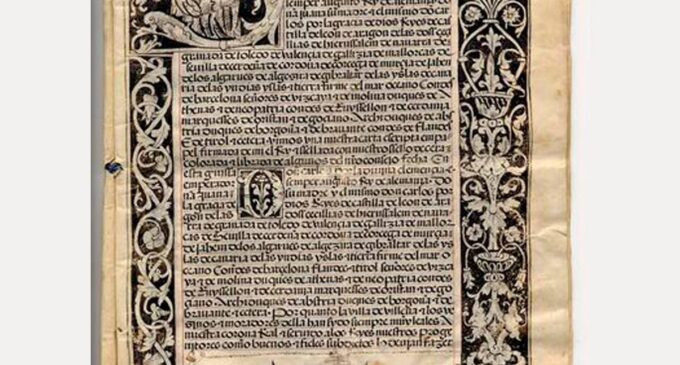 semper augusto Rey de alemania do
na juana su madre y el mismo do car
los por la gracia de dios Reyes de cas
tilla de leon de aragon de las dos sec
ilias de hierusalem de navarra de
granada de toledo de valencia de gallizia de mallorcas de
sevilla de cerdeña de cordova de corcega de murcia de jahem
de los algarves de algezira de gibraltar de las yslas de cana
ria de las yndias yslas e tierra firme del mar oceano Condes
de barcelona señores de vizcaya e de molina duques de
Athenas e de neopatria condes de Ruysellon e de cerdania
marqueses de oristan e de gociano Archiduques de abs
tria duques de borgoña e de bravante condes de flandes
E de tirol etcetera vimos una nuestra carta escripta en pa
pel firmada de mi el Rey e sellada con nuestro sello de cera
colorada e librada de algunos del nuestro consejo fecha En
esta guissa
Don carlos por la divina clemencia e
emperador semper augusto Rey de alemania do
na juana su madre y el mismo don carlos por
la gracia de dios Reyes de castilla de leon de ara
gon de las dos seccillias de hierussalem de nava
rra de granada de toledo de valencia de gallizia de mallor
cas de Sevilla de cerdeña de cordova de corcega de murcia
de jahem de los algarves de algezira de gibraltar de las yslas
de canaria de las yndias yslas e tierra firme del mar
oceano Condes de barcelona flandes e tirol señores de vizca
ya e de molina duques de athenas e de neopatria condes
de Ruysellon e de cerdania marquesses de oristan e de go
ciano Archiduques de abstria Duques de borgoña e de
bravante etcetera Por quanto la villa de villesta e los ve
sinos e moradores della han sydo siempre muy leales A
nuestra corona Real e servido a los Reyes nuestros proge
nitores como buenos e fieles subditos lo devian fazer